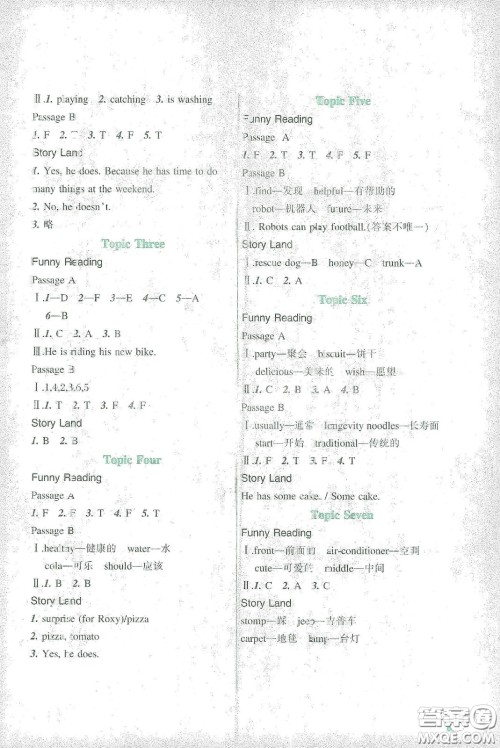 Ⅱ.1. playing 2. catching 3. is washing
Passage B
1. F 2. T 3. T 4. F 5. T
Story Land
1. Yes, he does. Because he has time to do
many things at the weekend.
2. No, he doesn't.
3. 略
Topic Three
Funny Reading
Passage A
Ⅰ.1—D 2—F 3—E 4—C 5—A
6—B
Ⅱ.1. C 2. A 3. B
Ⅲ.He is riding his new bike.
Passage B
Ⅰ.1,4,2,3,6,5
Ⅱ.1. T 2. F 3. T 4. F
Story Land
1. B 2. B
Topic Four
Funny Reading
Passage A
1. F 2. T 3. F 4. F 5. T
Passage B
Ⅰ.healthy—健康的 water—水
cola—可乐 should—应该
Story Land
1. surprise (for Roxy)/pizza
2. pizza, tomato
3. Yes, he does.
Topic Five
Funny Reading
Passage A
1. F 2. T 3. T 4. F 5. F
Passage B
Ⅰ.find—发现 helpful—有帮助的
robot—机器人 future—未来
Ⅱ. Robots can play football.(答案不唯一)
Story Land
Ⅰ.rescue dog—B honey—C trunk—A
Ⅱ.1. C 2. A
Topic Six
Funny Reading
Passage A
Ⅰ.party—聚会 biscuit—饼干
delicious—美味的 wish—愿望
Ⅱ.1. C 2. B 3. A 4. C
Passage B
Ⅰ.usually—通常 longevity noodles—长寿面
start—开始 traditional—传统的
Ⅱ.1. F 2. T 3. T 4. F 5. T
Story Land
He has some cake. / Some cake.
Topic Seven
Funny Reading
Ⅰ.front—前面的 air-conditioner—空调
cute—可爱的 middle—中间
Ⅱ.1. B 2. A 3. C
Story Land
stomp—踩 jeep—吉普车
carpet—地毯 lamp—台灯
答案圈
MXQE.COM